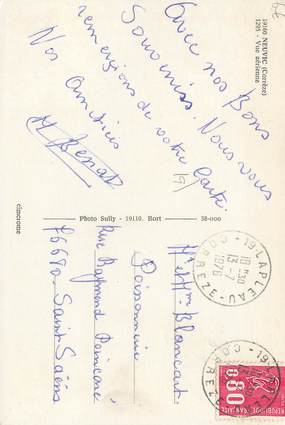 19160 NEUVIC (Corrèze)
1295 - Vue aérienne
Avec nos Bons
Souvenirs. Nous vous
remercions de votre Carte.
Nos Amitiés
H Benoit
Photo Sully - 19110. Bort
38-000
cincrome
19 - LAPLEAU
18 H 30
13 - 7
1976
CORREZE
Mr et Mme Blancart
Poissonnerie
Rue Raymond Poincaré
76680 - Saint-Saëns
0,80